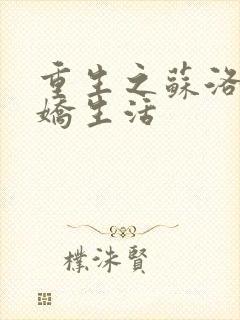 重生之蘇洛
嬌生活
樸洙賢